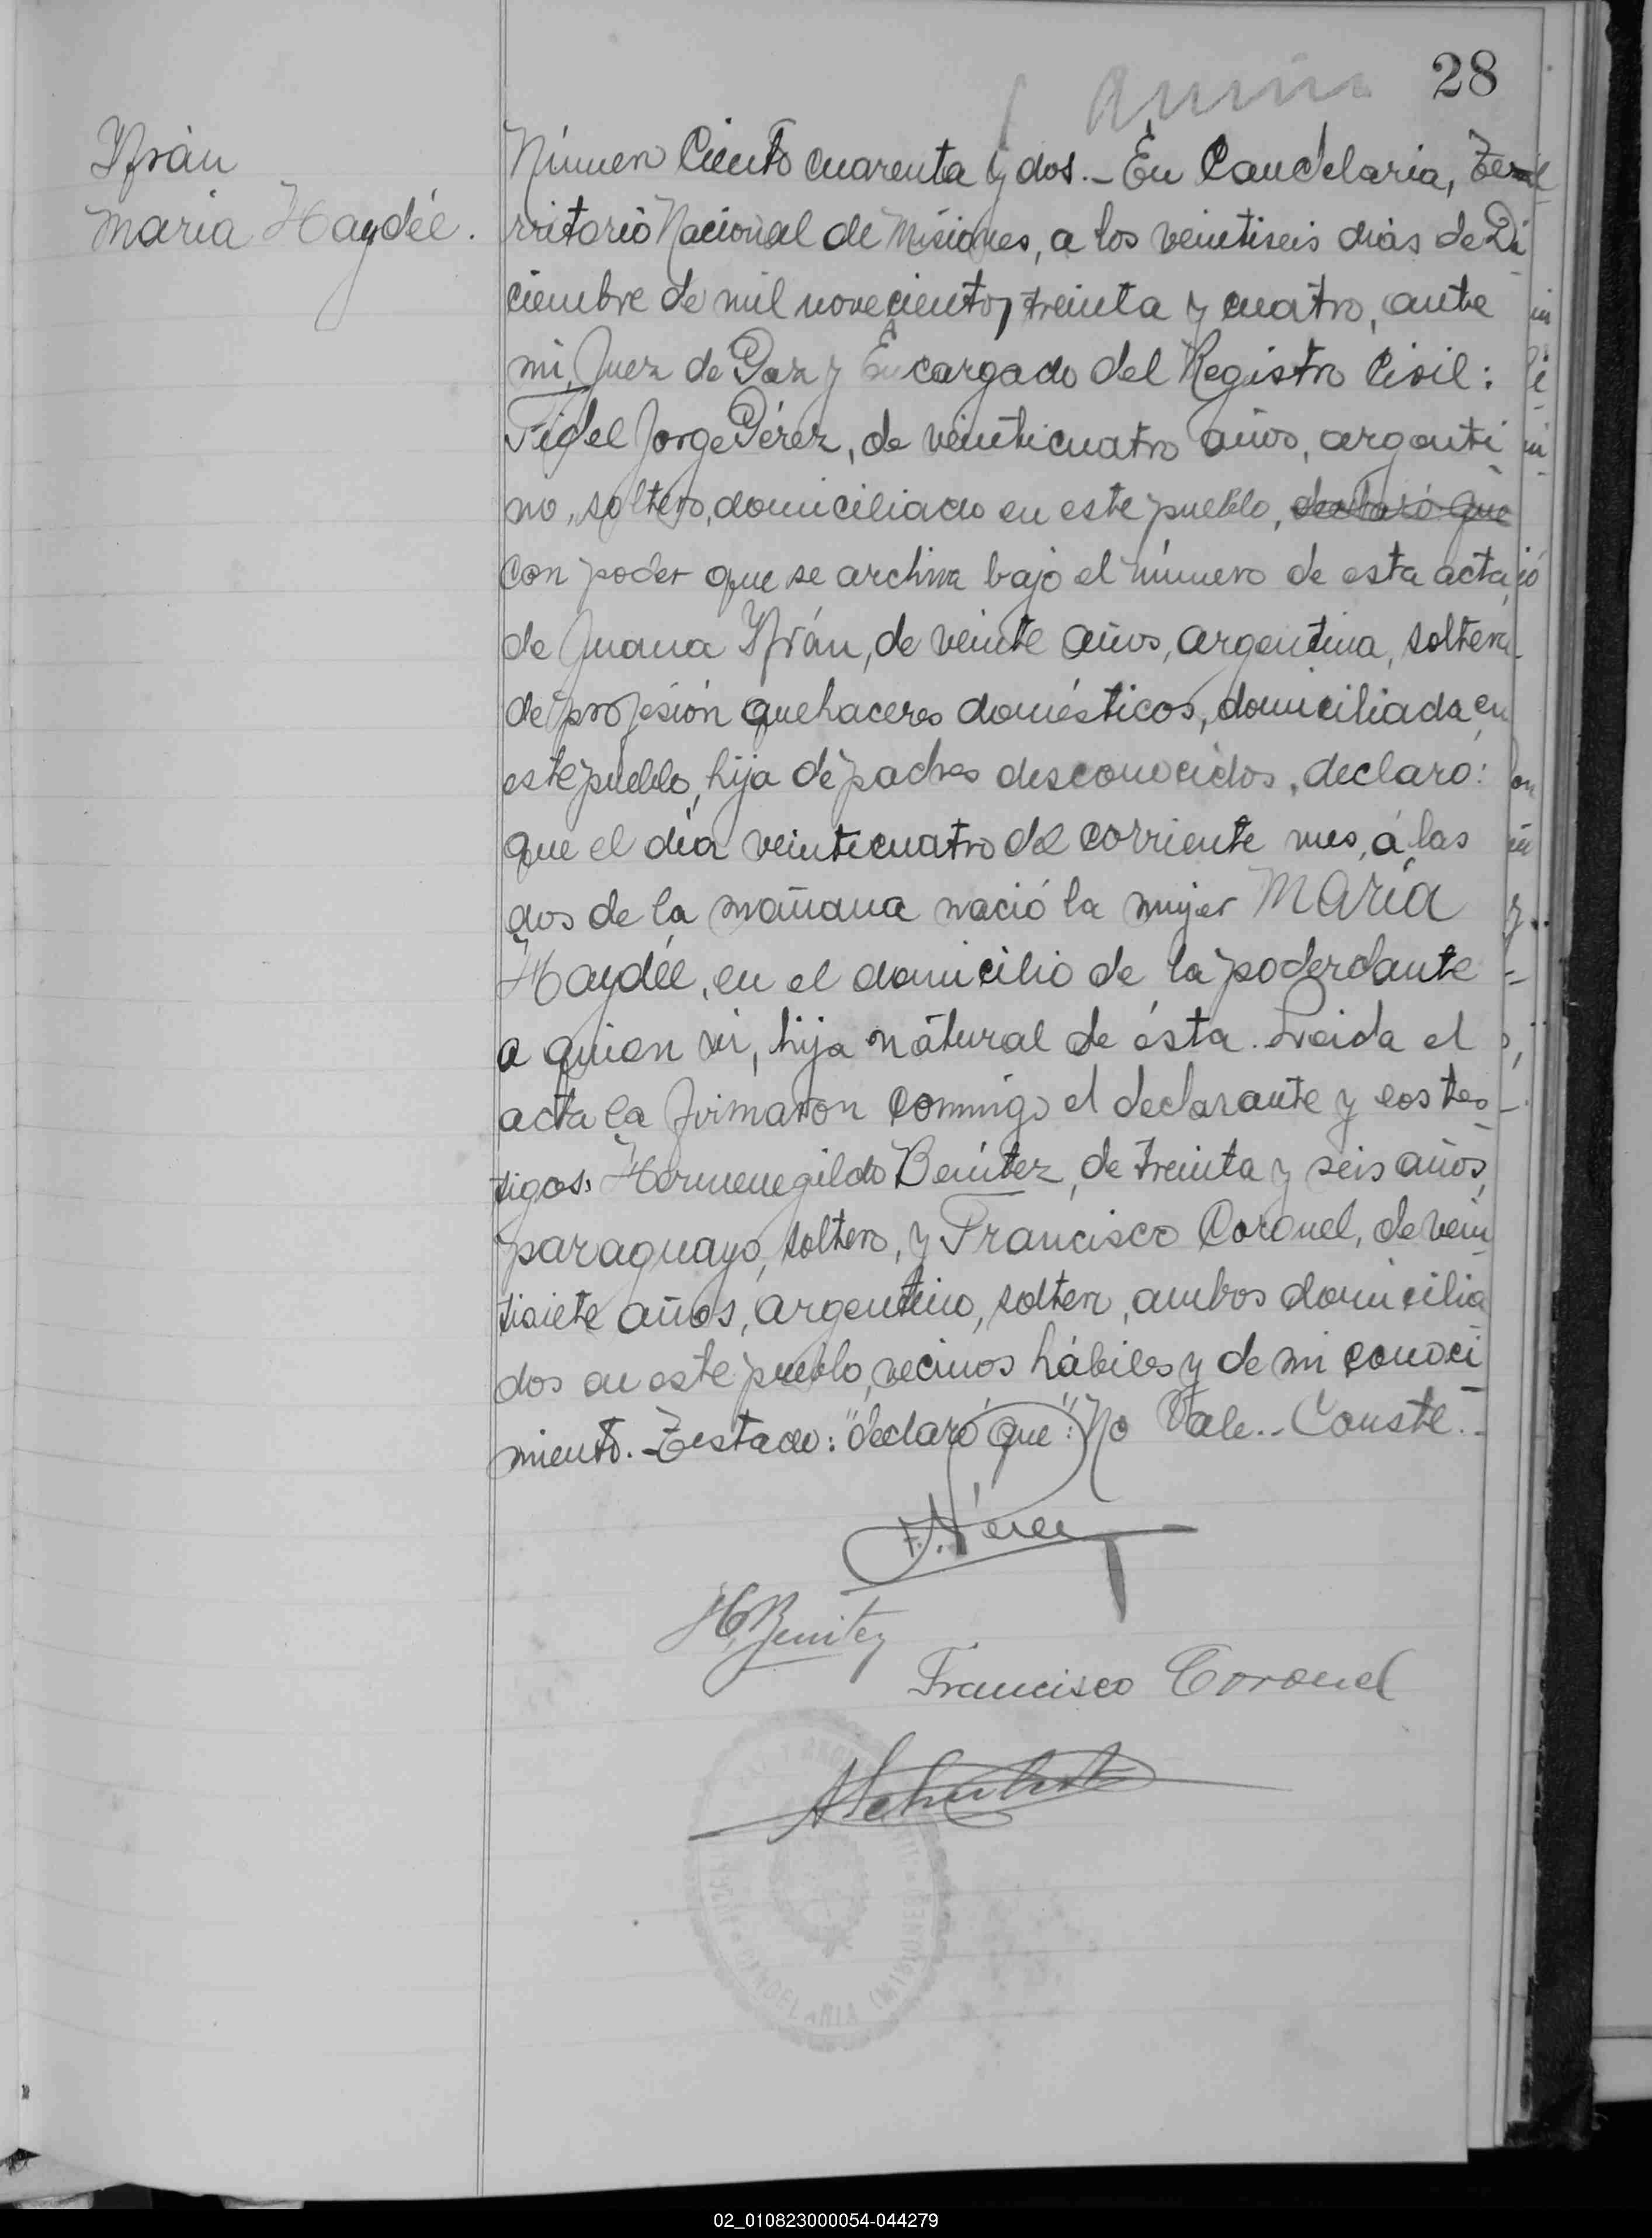 28
Yfrán
María Haydée.
Número Ciento cuarenta y dos.- En Candelaria, Te-
rritorio Nacional de Misiones, a los veintiseis dias de Di
ciembre de mil novecientos treinta y cuatro, ante
mi, Juez de Paz y Encargado del Registro Civil:
Fidel Jorge Pérez, de veinticuatro años, argenti
no, soltero, domiciliado en este pueblo, declaró que
con poder que se archiva bajo el número de esta acta,
de Juana Yfrán, de veinte años, argentina, soltera,
de profesión quehaceres domésticos, domiciliada en
este pueblo, hija de padres desconocidos, declaró:
que el día veinticuatro del corriente mes, á las
dos de la mañana nació la mujer María
Haydée, en el domicilio de la poderdante
a quien vi, hija natural de ésta. Leida el
acta la firmaron conmigo el declarante y los tes-
tigos: Hermenegildo Benítez, de treinta y seis años,
paraguayo, soltero, y Francisco Coronel, de vein
tisiete años, argentino, soltero, ambos domicilia
dos en este pueblo, vecinos hábiles y de mi conoci
miento.- Testado: "declaró que": No Vale.- Conste.-
F.J. Pérez
H. Benitez
Francisco Coronel
CANDELARIA
02_010823000054-044279